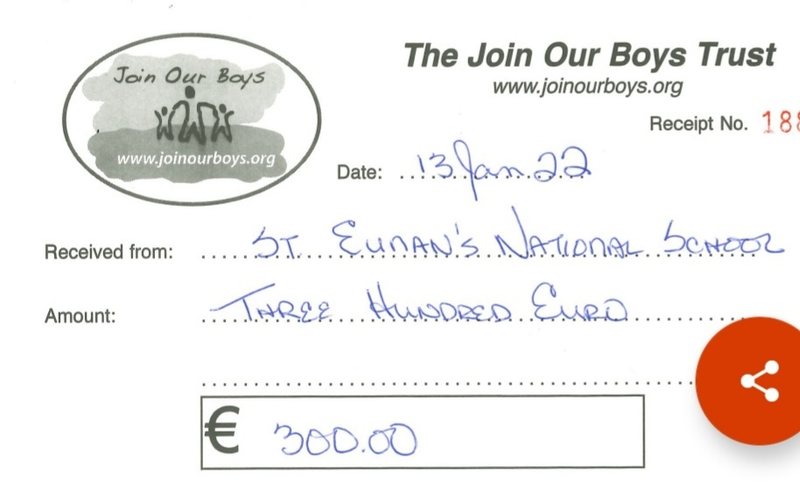 The Join Our Boys Trust
www.joinourboys.org
Join Our Boys
www.joinourboys.org
Receipt No. 188
Date: 13 Jan 22
Received from: St. Eunan's National School
Amount: Three Hundred Euro
€ 300.00